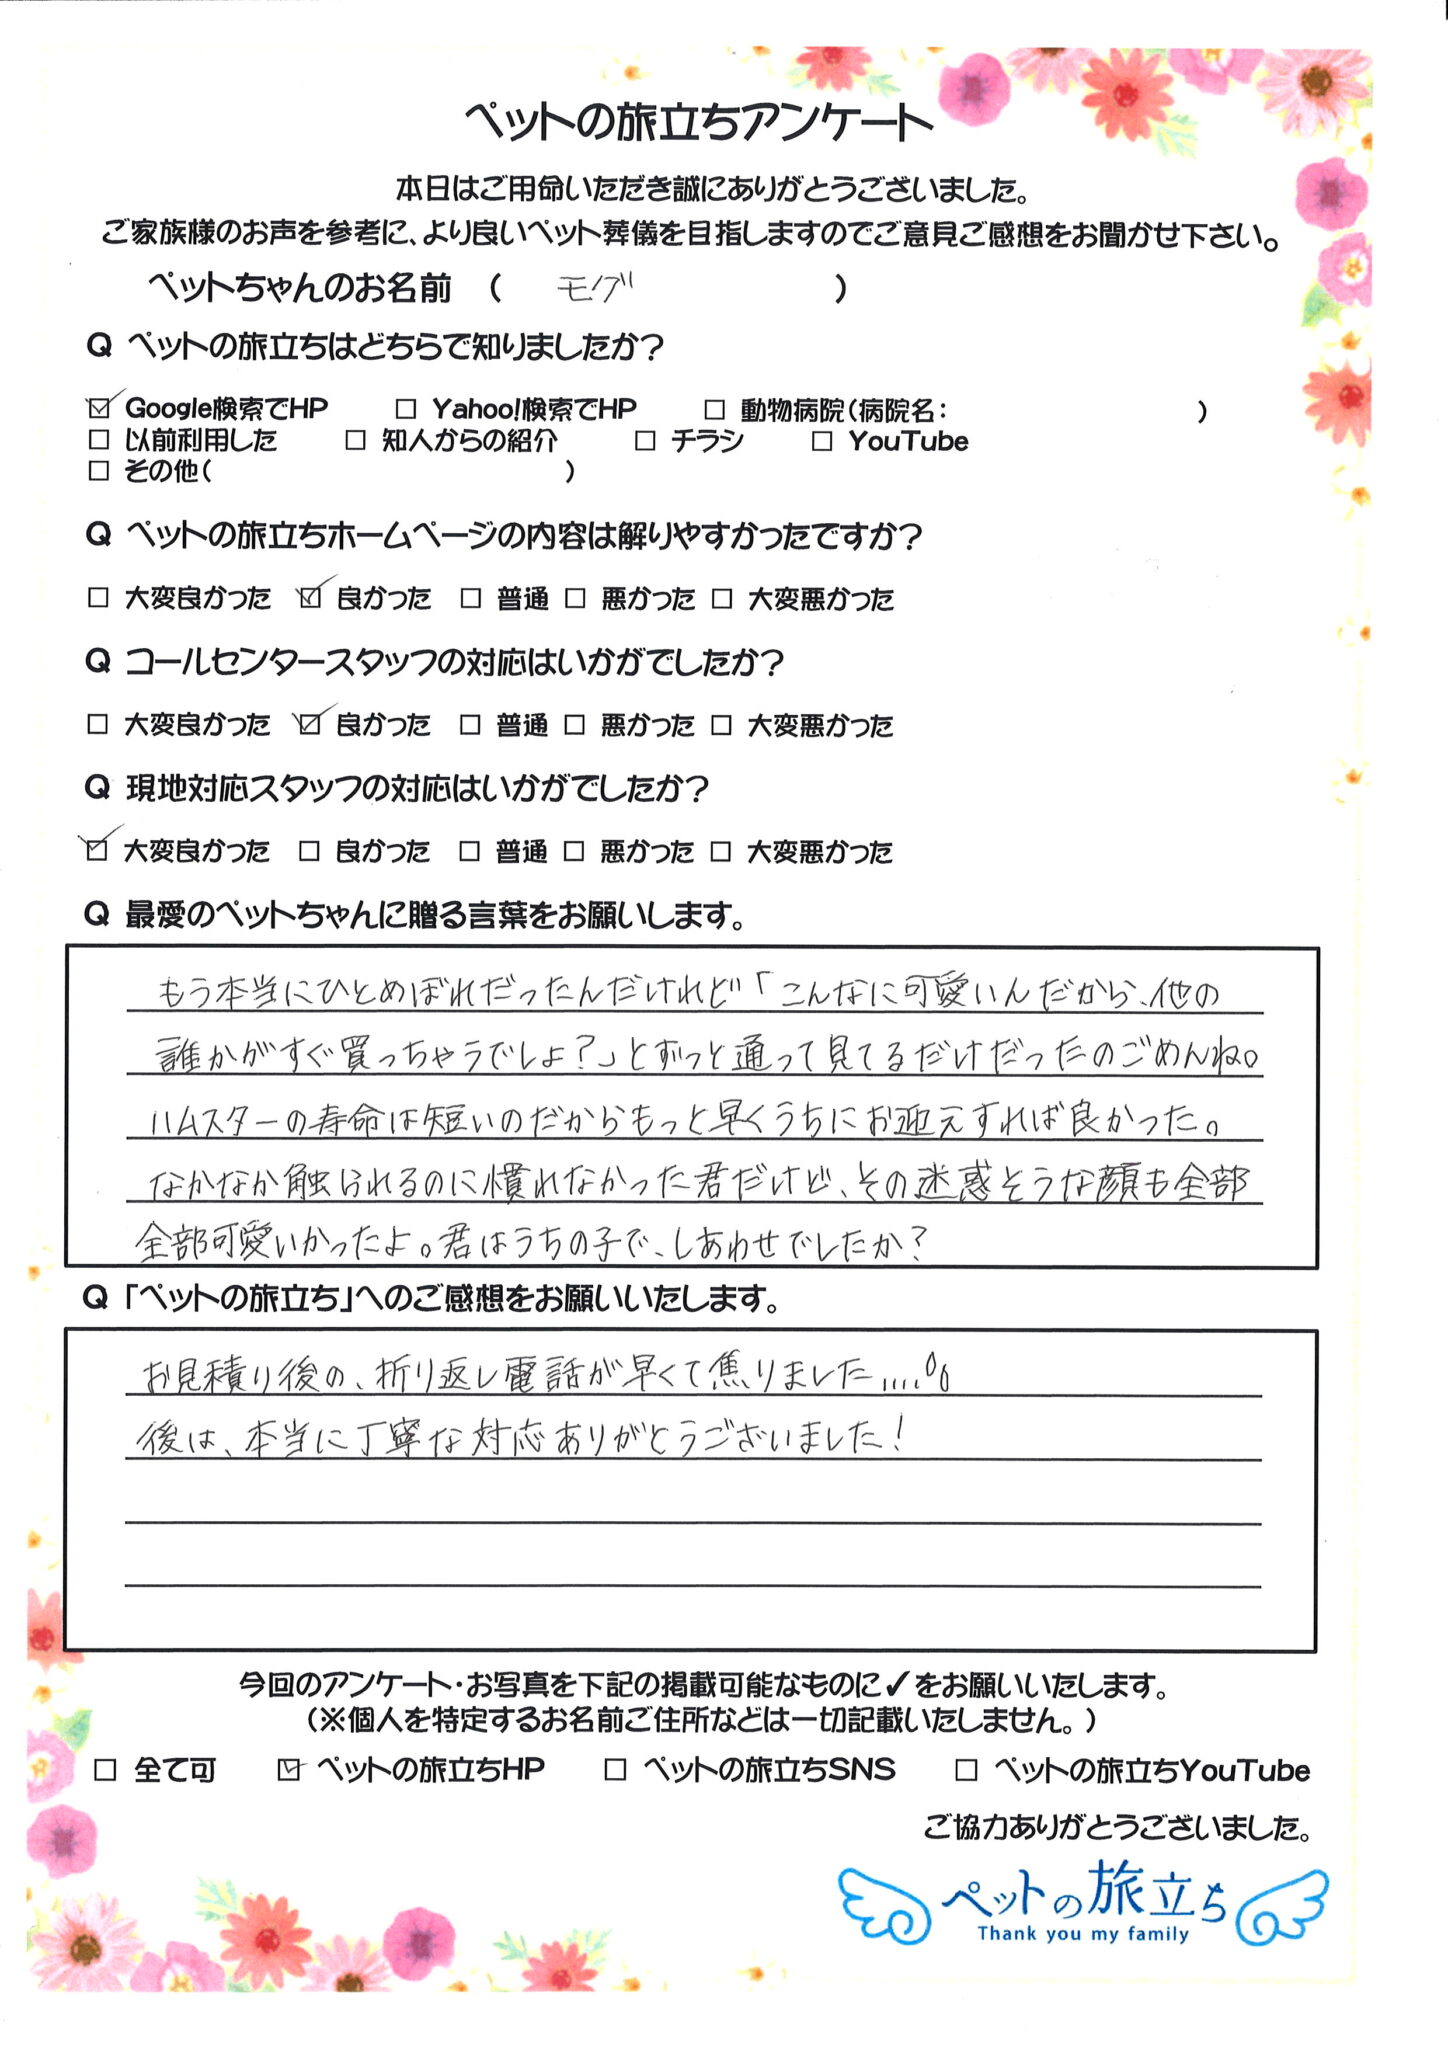 ペットの旅立ちアンケート
本日はご用命いただき誠にありがとうございました。
ご家族様のお声を参考に、より良いペット葬儀を目指しますのでご意見ご感想をお聞かせ下さい。
ペットちゃんのお名前 ( モグ )
Q ペットの旅立ちはどちらで知りましたか?
☑ Google検索でHP □ Yahoo!検索でHP □ 動物病院(病院名: )
□ 以前利用した □ 知人からの紹介 □ チラシ □ YouTube
□ その他( )
Q ペットの旅立ちホームページの内容は解りやすかったですか?
□ 大変良かった ☑ 良かった □ 普通 □ 悪かった □ 大変悪かった
Q コールセンタースタッフの対応はいかがでしたか?
□ 大変良かった ☑ 良かった □ 普通 □ 悪かった □ 大変悪かった
Q 現地対応スタッフの対応はいかがでしたか?
☑ 大変良かった □ 良かった □ 普通 □ 悪かった □ 大変悪かった
Q 最愛のペットちゃんに贈る言葉をお願いします。
もう本当にひとめぼれだったんだけれど「こんなに可愛いんだから、他の
誰かがすぐ買っちゃうでしょ?」とずっと通って見てるだけだったのごめんね。
ハムスターの寿命は短いのだからもっと早くうちにお迎えすれば良かった。
なかなか触られるのに慣れなかった君だけど、その迷惑そうな顔も全部
全部可愛いかったよ。君はうちの子で、しあわせでしたか?
Q 「ペットの旅立ち」へのご感想をお願いいたします。
お見積り後の、折り返し電話が早くて焦りました....
後は、本当に丁寧な対応ありがとうございました!
今回のアンケート・お写真を下記の掲載可能なものに✓をお願いいたします。
(※個人を特定するお名前ご住所などは一切記載いたしません。)
□ 全て可 ☑ ペットの旅立ちHP □ ペットの旅立ちSNS □ ペットの旅立ちYouTube
ご協力ありがとうございました。
ペットの旅立ち
Thank you my family